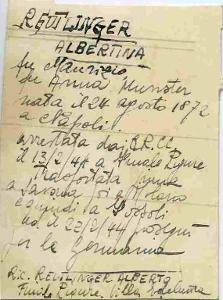 REUTLINGER
ALBERTINA
fu Maurizio
fu Anna Munster
nata il 24 agosto 1872
a Napoli.
arrestata dai RR.CC.
il 13/2/44 a Finale Ligure
Trasportata prima
a Savona poi a
e quindi a Fossoli
ed il 22/2/44 proseguì
per la Germania
Ric. REUTLINGER ALBERTO
Finale Ligure, Villa